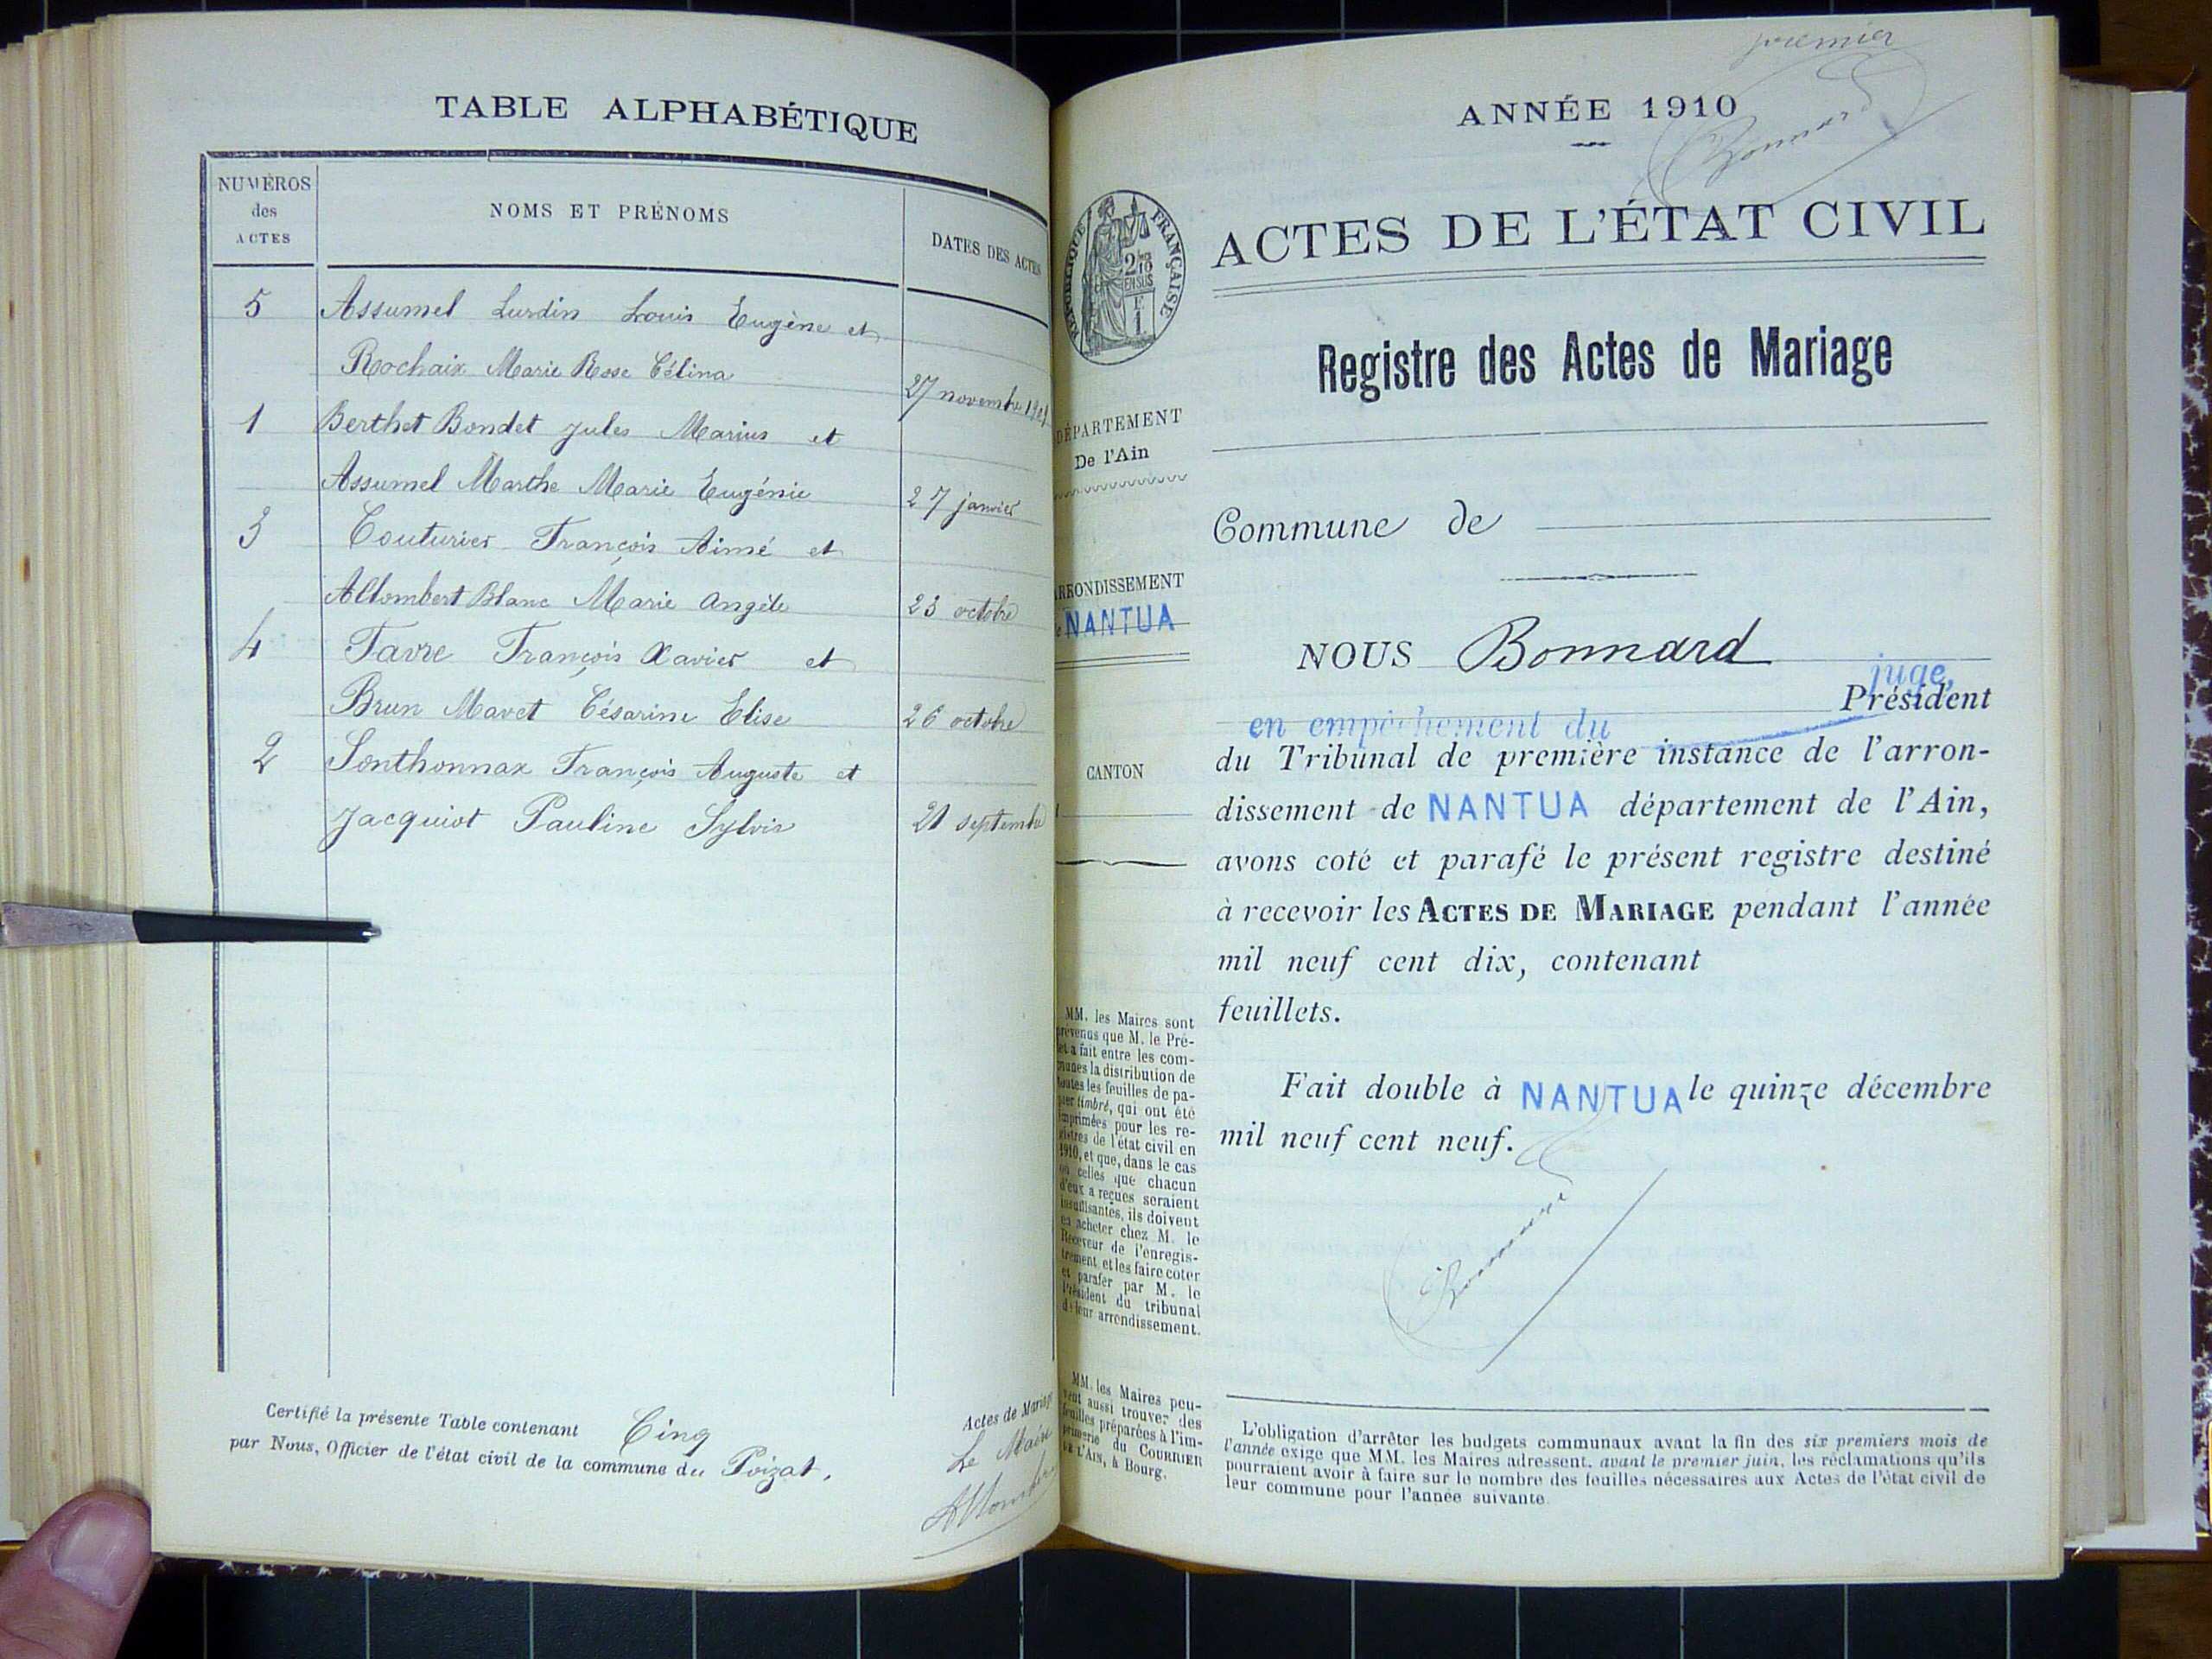 TABLE ALPHABÉTIQUE
NUMÉROS
des
ACTES
NOMS ET PRÉNOMS
DATES DES ACTES
5 Assumel Lurdin Louis Eugène et
Rochaix Marie Rose Célina 27 novembre
1 Berthet Bondet Jules Marius et
Assumel Marthe Marie Eugénie 27 janvier
3 Couturier François Aimé et
Allombert Blanc Marie Angèle 23 octobre
4 Favre François Xavier et
Brun Mavet Césarine Elise 26 octobre
2 Sonthonnax François Auguste et
Jacquiot Pauline Sylvie 21 septembre
Certifié la présente Table contenant Cinq Actes de Mariage
par Nous, Officier de l'état civil de la commune du Poizat.
Le Maire
premier
Bonnard
ANNÉE 1910
ACTES DE L'ÉTAT CIVIL
RÉPUBLIQUE FRANÇAISE
Registre des Actes de Mariage
DÉPARTEMENT
De l'Ain
Commune de
ARRONDISSEMENT
NANTUA
CANTON
NOUS Bonnard
juge,
Président
en empêchement du
du Tribunal de première instance de l'arron-
dissement de NANTUA département de l'Ain,
avons coté et parafé le présent registre destiné
à recevoir les ACTES DE MARIAGE pendant l'année
mil neuf cent dix, contenant
feuillets.
Fait double à NANTUA le quinze décembre
mil neuf cent neuf.
Bonnard
MM. les Maires sont
prévenus que M. le Pré-
fet a fait entre les com-
munes la distribution de
toutes les feuilles de pa-
pier timbré, qui ont été
imprimées pour les re-
gistres de l'état civil en
1910, et que, dans le cas
où celles que chacun
d'eux a reçues seraient
insuffisantes, ils doivent
en acheter chez M. le
Receveur de l'enregis-
trement, et les faire coter
et parafer par M. le
Président du tribunal
de leur arrondissement.
MM. les Maires peu-
vent aussi trouver des
feuilles préparées à l'im-
primerie du COURRIER
DE L'AIN, à Bourg.
L'obligation d'arrêter les budgets communaux avant la fin des six premiers mois de
l'année exige que MM. les Maires adressent, avant le premier juin, les réclamations qu'ils
pourraient avoir à faire sur le nombre des feuilles nécessaires aux Actes de l'état civil de
leur commune pour l'année suivante.